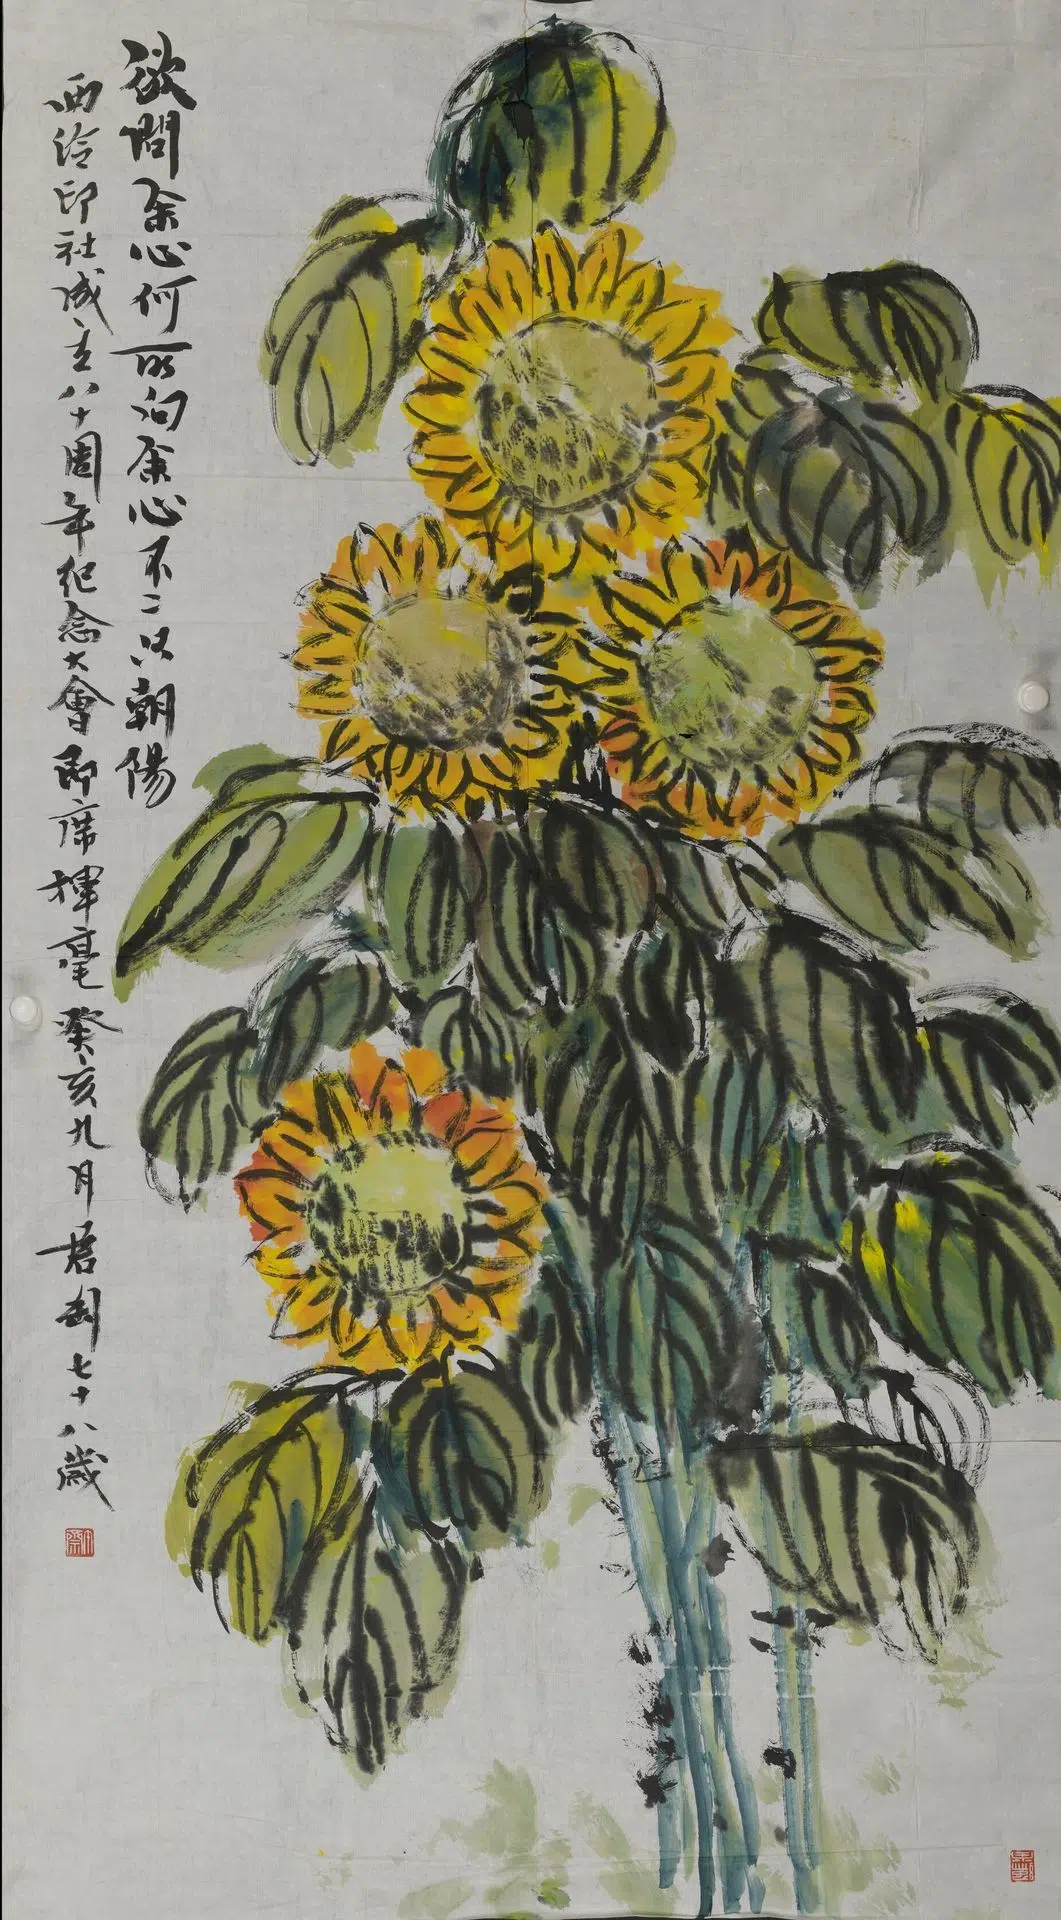 欲問余心何所向余心不二只朝陽
西泠印社成立八十周年纪念大會即席揮毫癸亥九月君匋七十八歲